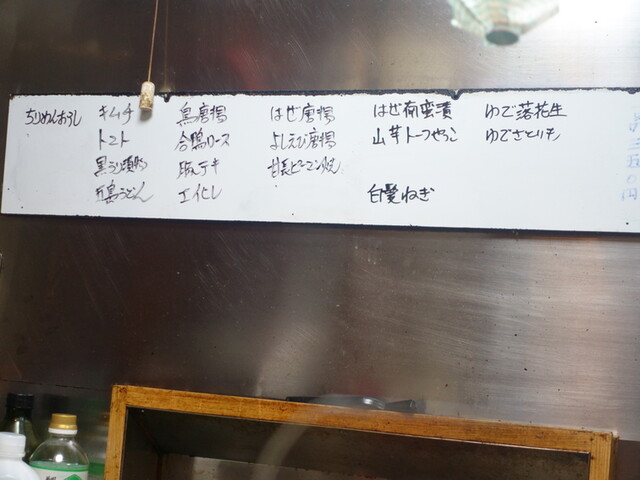 ちりめんおろし
キムチ
トマト
五島うどん
鳥唐揚
合鴨ロース
豚テキ
エイヒレ
はぜ唐揚
よしえび唐揚
甘長ピーマン焼
はぜ南蛮漬
山芋トーフやっこ
白髪ねぎ
ゆで落花生
ゆでさといも
三五〇円